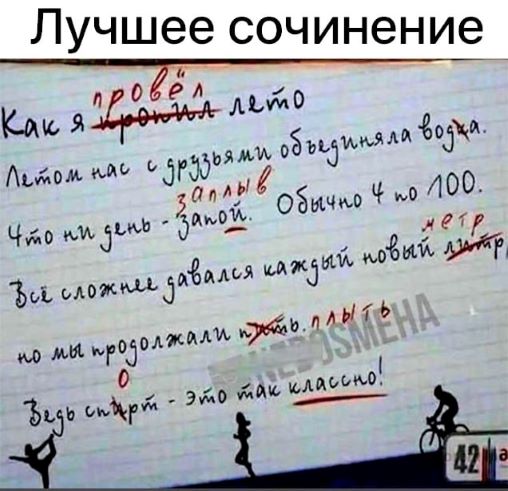 Лучшее сочинение
провёл
Как я пропил лето
Летом нас с друзьями объединяла водка.
заплыв
Что ни день - запой. Обычно 4 по 100.
метр
Всё сложнее давался каждый новый литр,
но мы продолжали пить. плыть
о
Ведь спирт - это так классно!
SMEHA
42